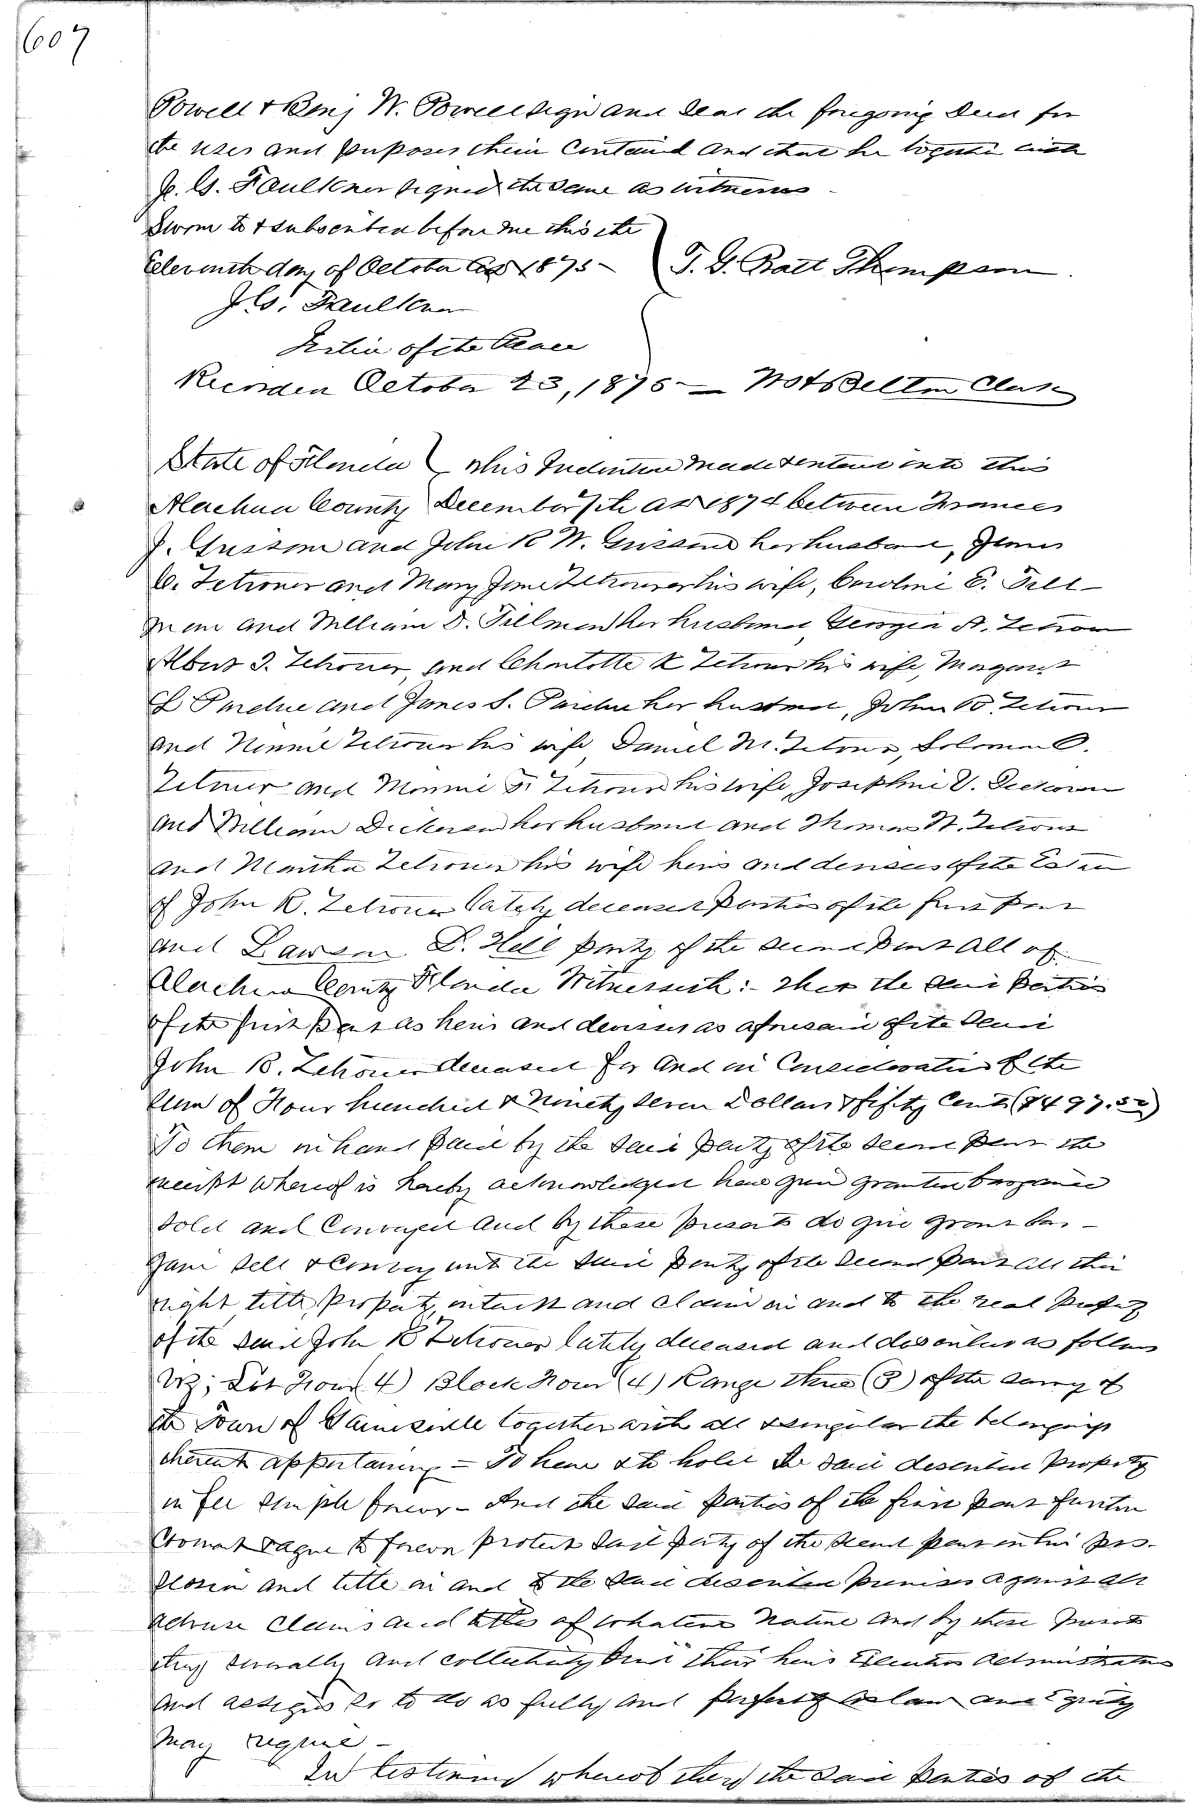 607
Powell & Benj W. Powell sign and seal the foregoing Deed for
the uses and puposes therin Contained and that he together with
J. G. Faulkner signed the same as witnesses
Sworn to & subscribed before me this the
Eleventh day of October AD 1875 - T. G. Pratt Thompson.
J. G. Faulkner
Justice of the Peace
Recorded October 23, 1875 - Clerk
State of Florida This Indenture made & entered into this
Alachua County December 7th AD 1874 between Frances
J. Grissom and John R W. Grissom her husband, James
C. Zetrouer and Mary Jane Zetrouer his wife, Caroline E. Till-
man and William D. Tillman her husband, Georgia A. Zetrouer
Albert I. Zetrouer, and Charlotte K Zetrouer his wife, Margaret
L Pardue and James S. Pardue her husband, John R. Zetrouer
and Ninnie Zetrouer his wife, Daniel M. Zetrouer, Solomon O.
Zetrouer and Minnie F. Zetrouer his wife, Josephine V. Dickerson
and William Dickerson her husband and Thomas W. Zetrouer
and Martha Zetrouer his wife heirs and devisees of the Estate
of John R. Zetrouer lately deceased parties of the first part
and Lawson L. Hill party of the second part all of
Alachua County Florida Witnesseth:- That the said parties
of the first part as heirs and devisees as aforesaid of the said
John R. Zetrouer deceased for and in Consideration of the
sum of Four hundred & Ninety Seven Dollars & fifty Cents ($497.50)
To them in hand paid by the said party of the second part the
receipt whereof is hereby acknowledged have given granted bargained
sold and Conveyed and by these presents do give grant bar-
gain sell & Convey unto the said party of the second part all their
right, title, property, interest and claim in and to the real property
of the said John R Zetrouer lately deceased and described as follows
Viz; Lot Four (4) Block Four (4) Range three (3) of the survey of
the Town of Gainesville together with all & singular the belongings
thereunto appertaining - To have & to hold the said described property
in fee simple forever - And the said parties of the first part further
covenant & agree to forever protect said party of the second part in his pos-
session and title in and to the said described premises against all
adverse claims and titles of whatever nature and by these presents
they severally and collectively bind their heirs Executors administrators
and assigns so to do as fully and perfectly as law and Equity
may require -
In testimony whereof they the said parties of the